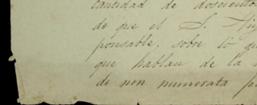 cantidad de doscientos
de que el S.
ponsable, sobre lo qu
que hablan de la
de non numerata pe